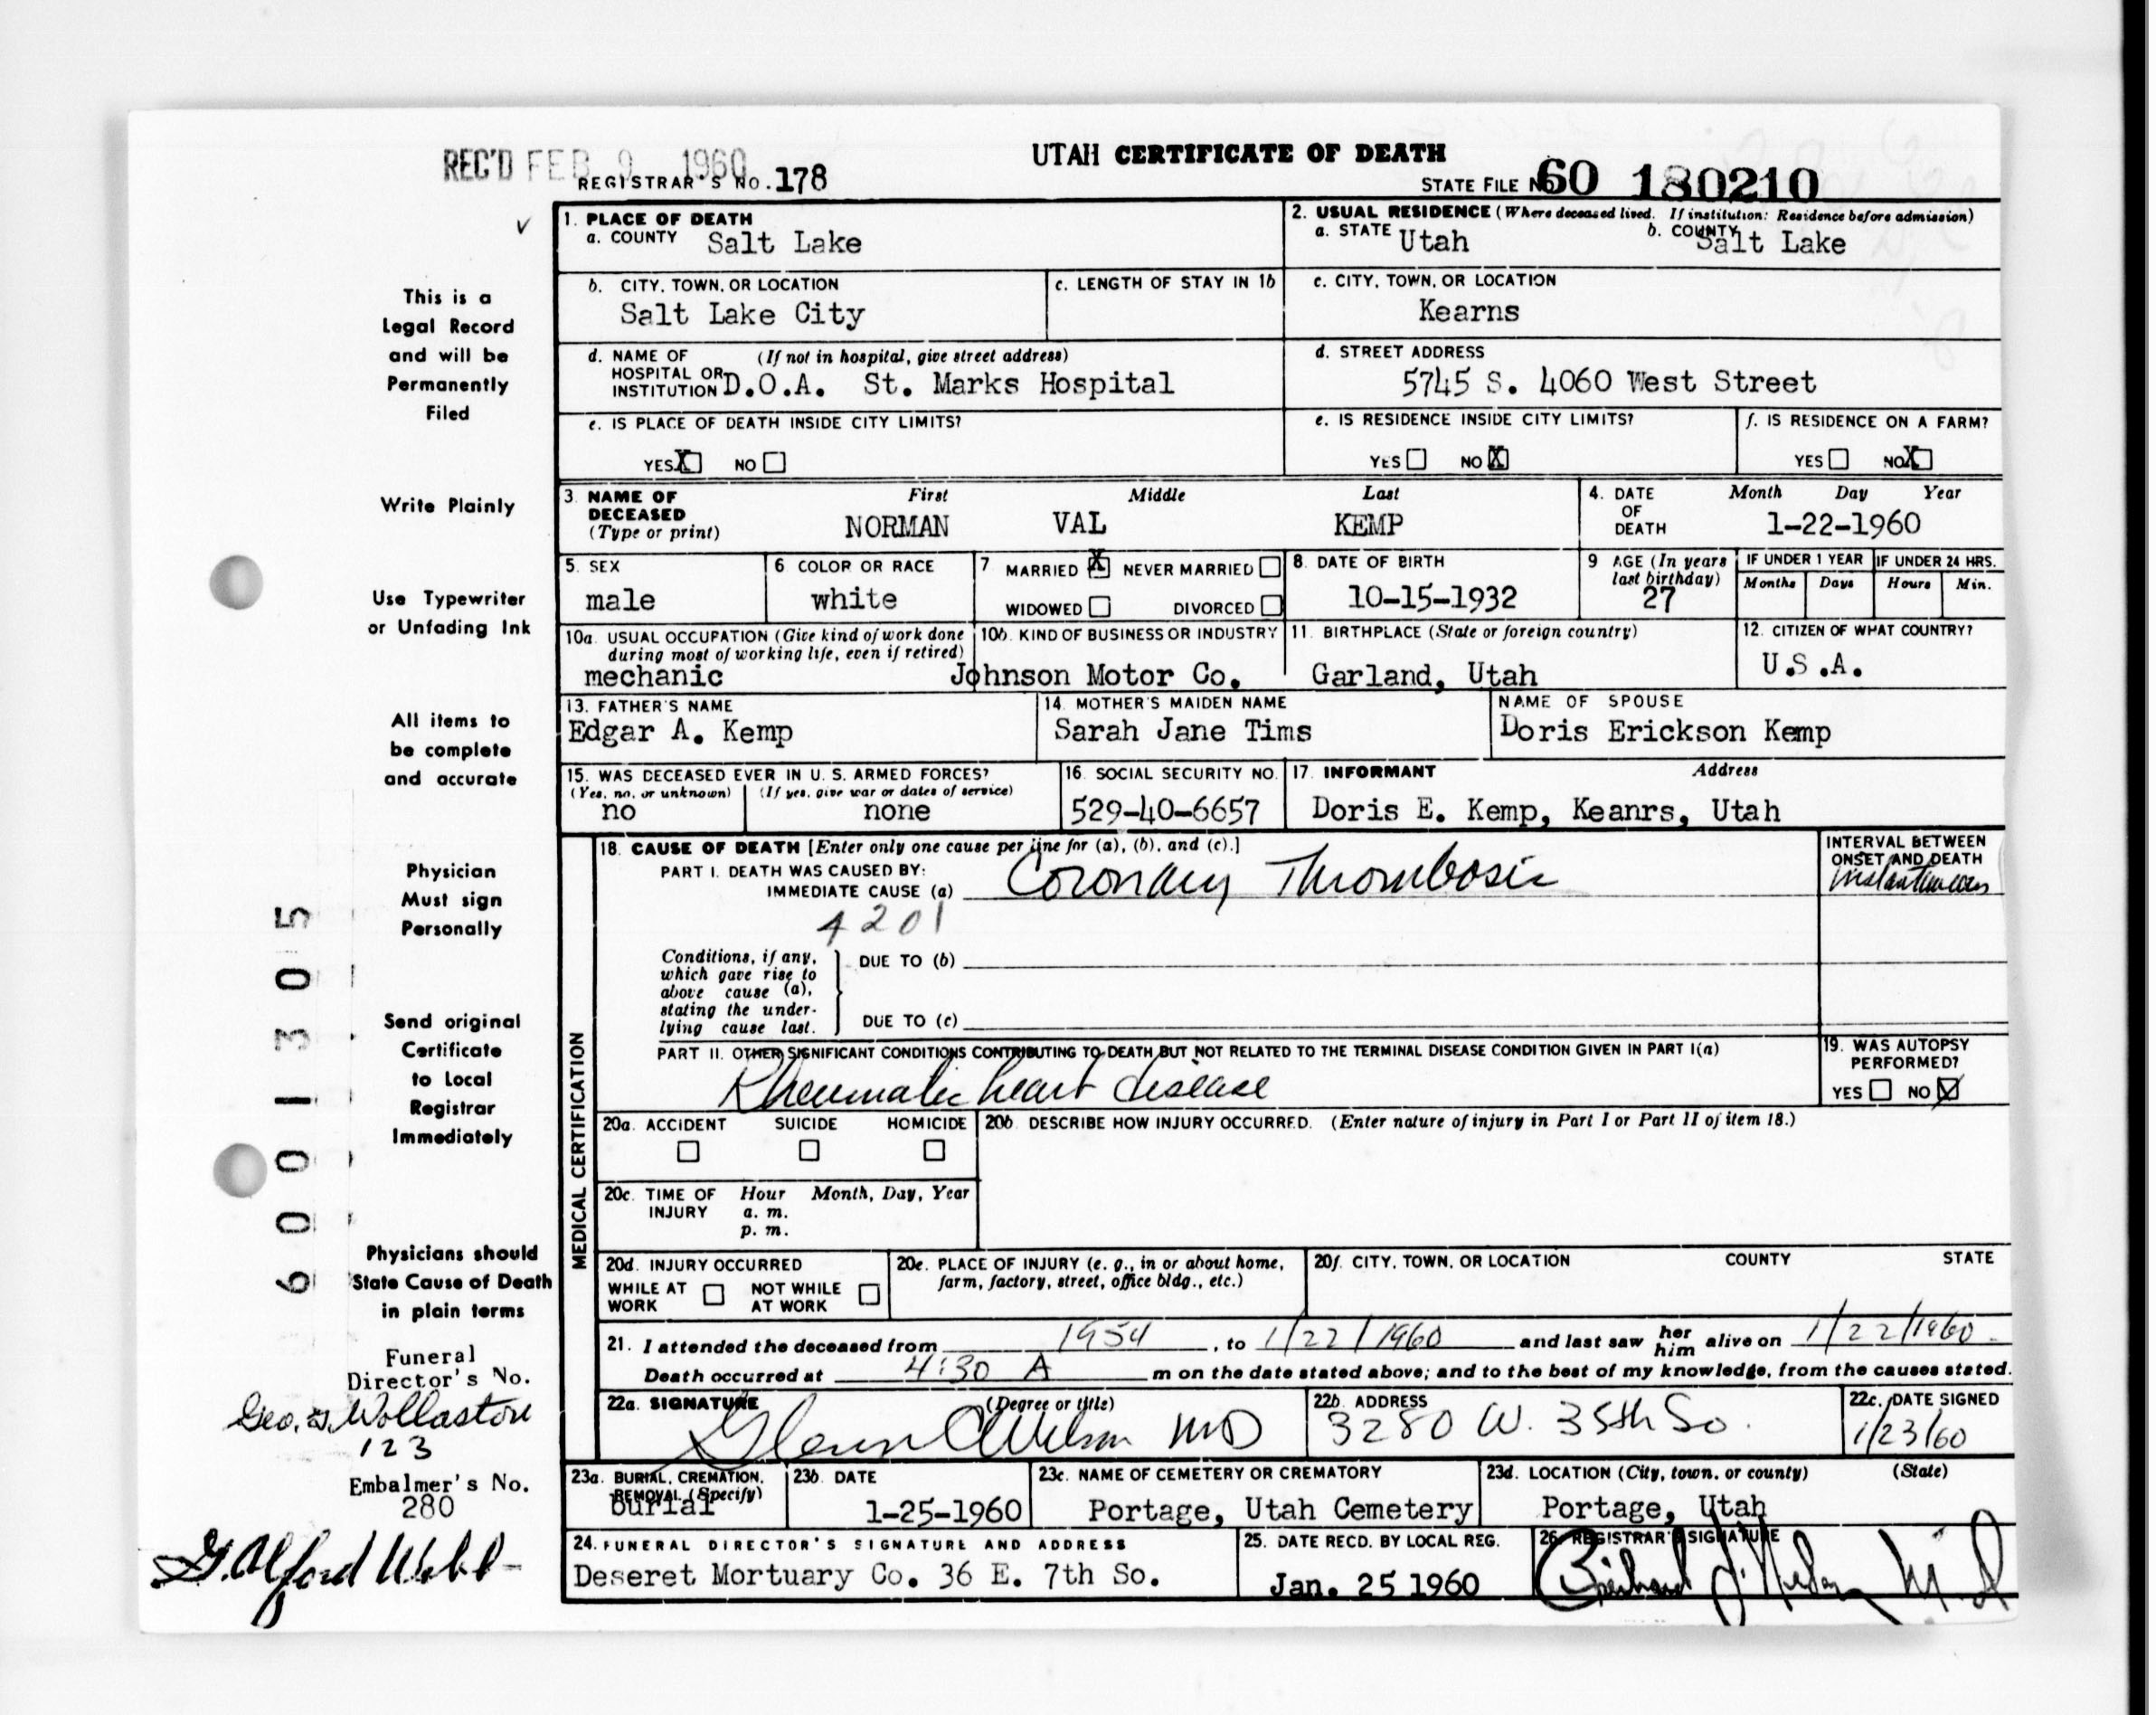 REC'D FEB 9 1960
UTAH CERTIFICATE OF DEATH
REGISTRAR'S NO. 178
STATE FILE NO. 60 180210
This is a
Legal Record
and will be
Permanently
Filed
Write Plainly
Use Typewriter
or Unfading Ink
All items to
be complete
and accurate
Physician
Must sign
Personally
Send original
Certificate
to Local
Registrar
Immediately
Physicians should
State Cause of Death
in plain terms
Funeral
Director's No.
Geo. Wollaston
123
Embalmer's No.
280
G. Alford Webb
6001305
1. PLACE OF DEATH
a. COUNTY Salt Lake
2. USUAL RESIDENCE (Where deceased lived. If institution: Residence before admission)
a. STATE Utah b. COUNTY Salt Lake
b. CITY, TOWN, OR LOCATION
Salt Lake City
c. LENGTH OF STAY IN 1b
c. CITY, TOWN, OR LOCATION
Kearns
d. NAME OF HOSPITAL OR INSTITUTION (If not in hospital, give street address)
D.O.A. St. Marks Hospital
d. STREET ADDRESS
5745 S. 4060 West Street
e. IS PLACE OF DEATH INSIDE CITY LIMITS?
YES X NO
e. IS RESIDENCE INSIDE CITY LIMITS?
YES NO X
f. IS RESIDENCE ON A FARM?
YES NO X
3. NAME OF DECEASED (Type or print)
First Middle Last
NORMAN VAL KEMP
4. DATE OF DEATH Month Day Year
1-22-1960
5. SEX
male
6 COLOR OR RACE
white
7 MARRIED X NEVER MARRIED
WIDOWED DIVORCED
8. DATE OF BIRTH
10-15-1932
9 AGE (In years last birthday)
27
IF UNDER 1 YEAR IF UNDER 24 HRS.
Months Days Hours Min.
10a. USUAL OCCUPATION (Give kind of work done during most of working life, even if retired)
mechanic
10b. KIND OF BUSINESS OR INDUSTRY
Johnson Motor Co.
11. BIRTHPLACE (State or foreign country)
Garland, Utah
12. CITIZEN OF WHAT COUNTRY?
U.S.A.
13. FATHER'S NAME
Edgar A. Kemp
14. MOTHER'S MAIDEN NAME
Sarah Jane Tims
NAME OF SPOUSE
Doris Erickson Kemp
15. WAS DECEASED EVER IN U. S. ARMED FORCES?
(Yes, no, or unknown) (If yes, give war or dates of service)
no none
16. SOCIAL SECURITY NO.
529-40-6657
17. INFORMANT Address
Doris E. Kemp, Keanrs, Utah
MEDICAL CERTIFICATION
18. CAUSE OF DEATH [Enter only one cause per line for (a), (b), and (c).]
PART I. DEATH WAS CAUSED BY:
IMMEDIATE CAUSE (a) Coronary Thrombosis
4201
INTERVAL BETWEEN ONSET AND DEATH
instantaneous
Conditions, if any, which gave rise to above cause (a), stating the underlying cause last.
DUE TO (b)
DUE TO (c)
PART II. OTHER SIGNIFICANT CONDITIONS CONTRIBUTING TO DEATH BUT NOT RELATED TO THE TERMINAL DISEASE CONDITION GIVEN IN PART I(a)
Rheumatic heart disease
19. WAS AUTOPSY PERFORMED?
YES NO X
20a. ACCIDENT SUICIDE HOMICIDE
20b. DESCRIBE HOW INJURY OCCURRED. (Enter nature of injury in Part I or Part II of item 18.)
20c. TIME OF INJURY Hour Month, Day, Year
a. m.
p. m.
20d. INJURY OCCURRED
WHILE AT WORK NOT WHILE AT WORK
20e. PLACE OF INJURY (e. g., in or about home, farm, factory, street, office bldg., etc.)
20f. CITY, TOWN, OR LOCATION COUNTY STATE
21. I attended the deceased from 1954, to 1/22/1960 and last saw her him alive on 1/22/1960.
Death occurred at 4:30 A m on the date stated above; and to the best of my knowledge, from the causes stated.
22a. SIGNATURE (Degree or title)
Glenn C Wilson MD
22b. ADDRESS
3280 W. 35th So.
22c. DATE SIGNED
1/23/60
23a. BURIAL, CREMATION, REMOVAL (Specify)
Burial
23b. DATE
1-25-1960
23c. NAME OF CEMETERY OR CREMATORY
Portage, Utah Cemetery
23d. LOCATION (City, town, or county) (State)
Portage, Utah
24. FUNERAL DIRECTOR'S SIGNATURE AND ADDRESS
Deseret Mortuary Co. 36 E. 7th So.
25. DATE RECD. BY LOCAL REG.
Jan. 25 1960
26. REGISTRAR'S SIGNATURE